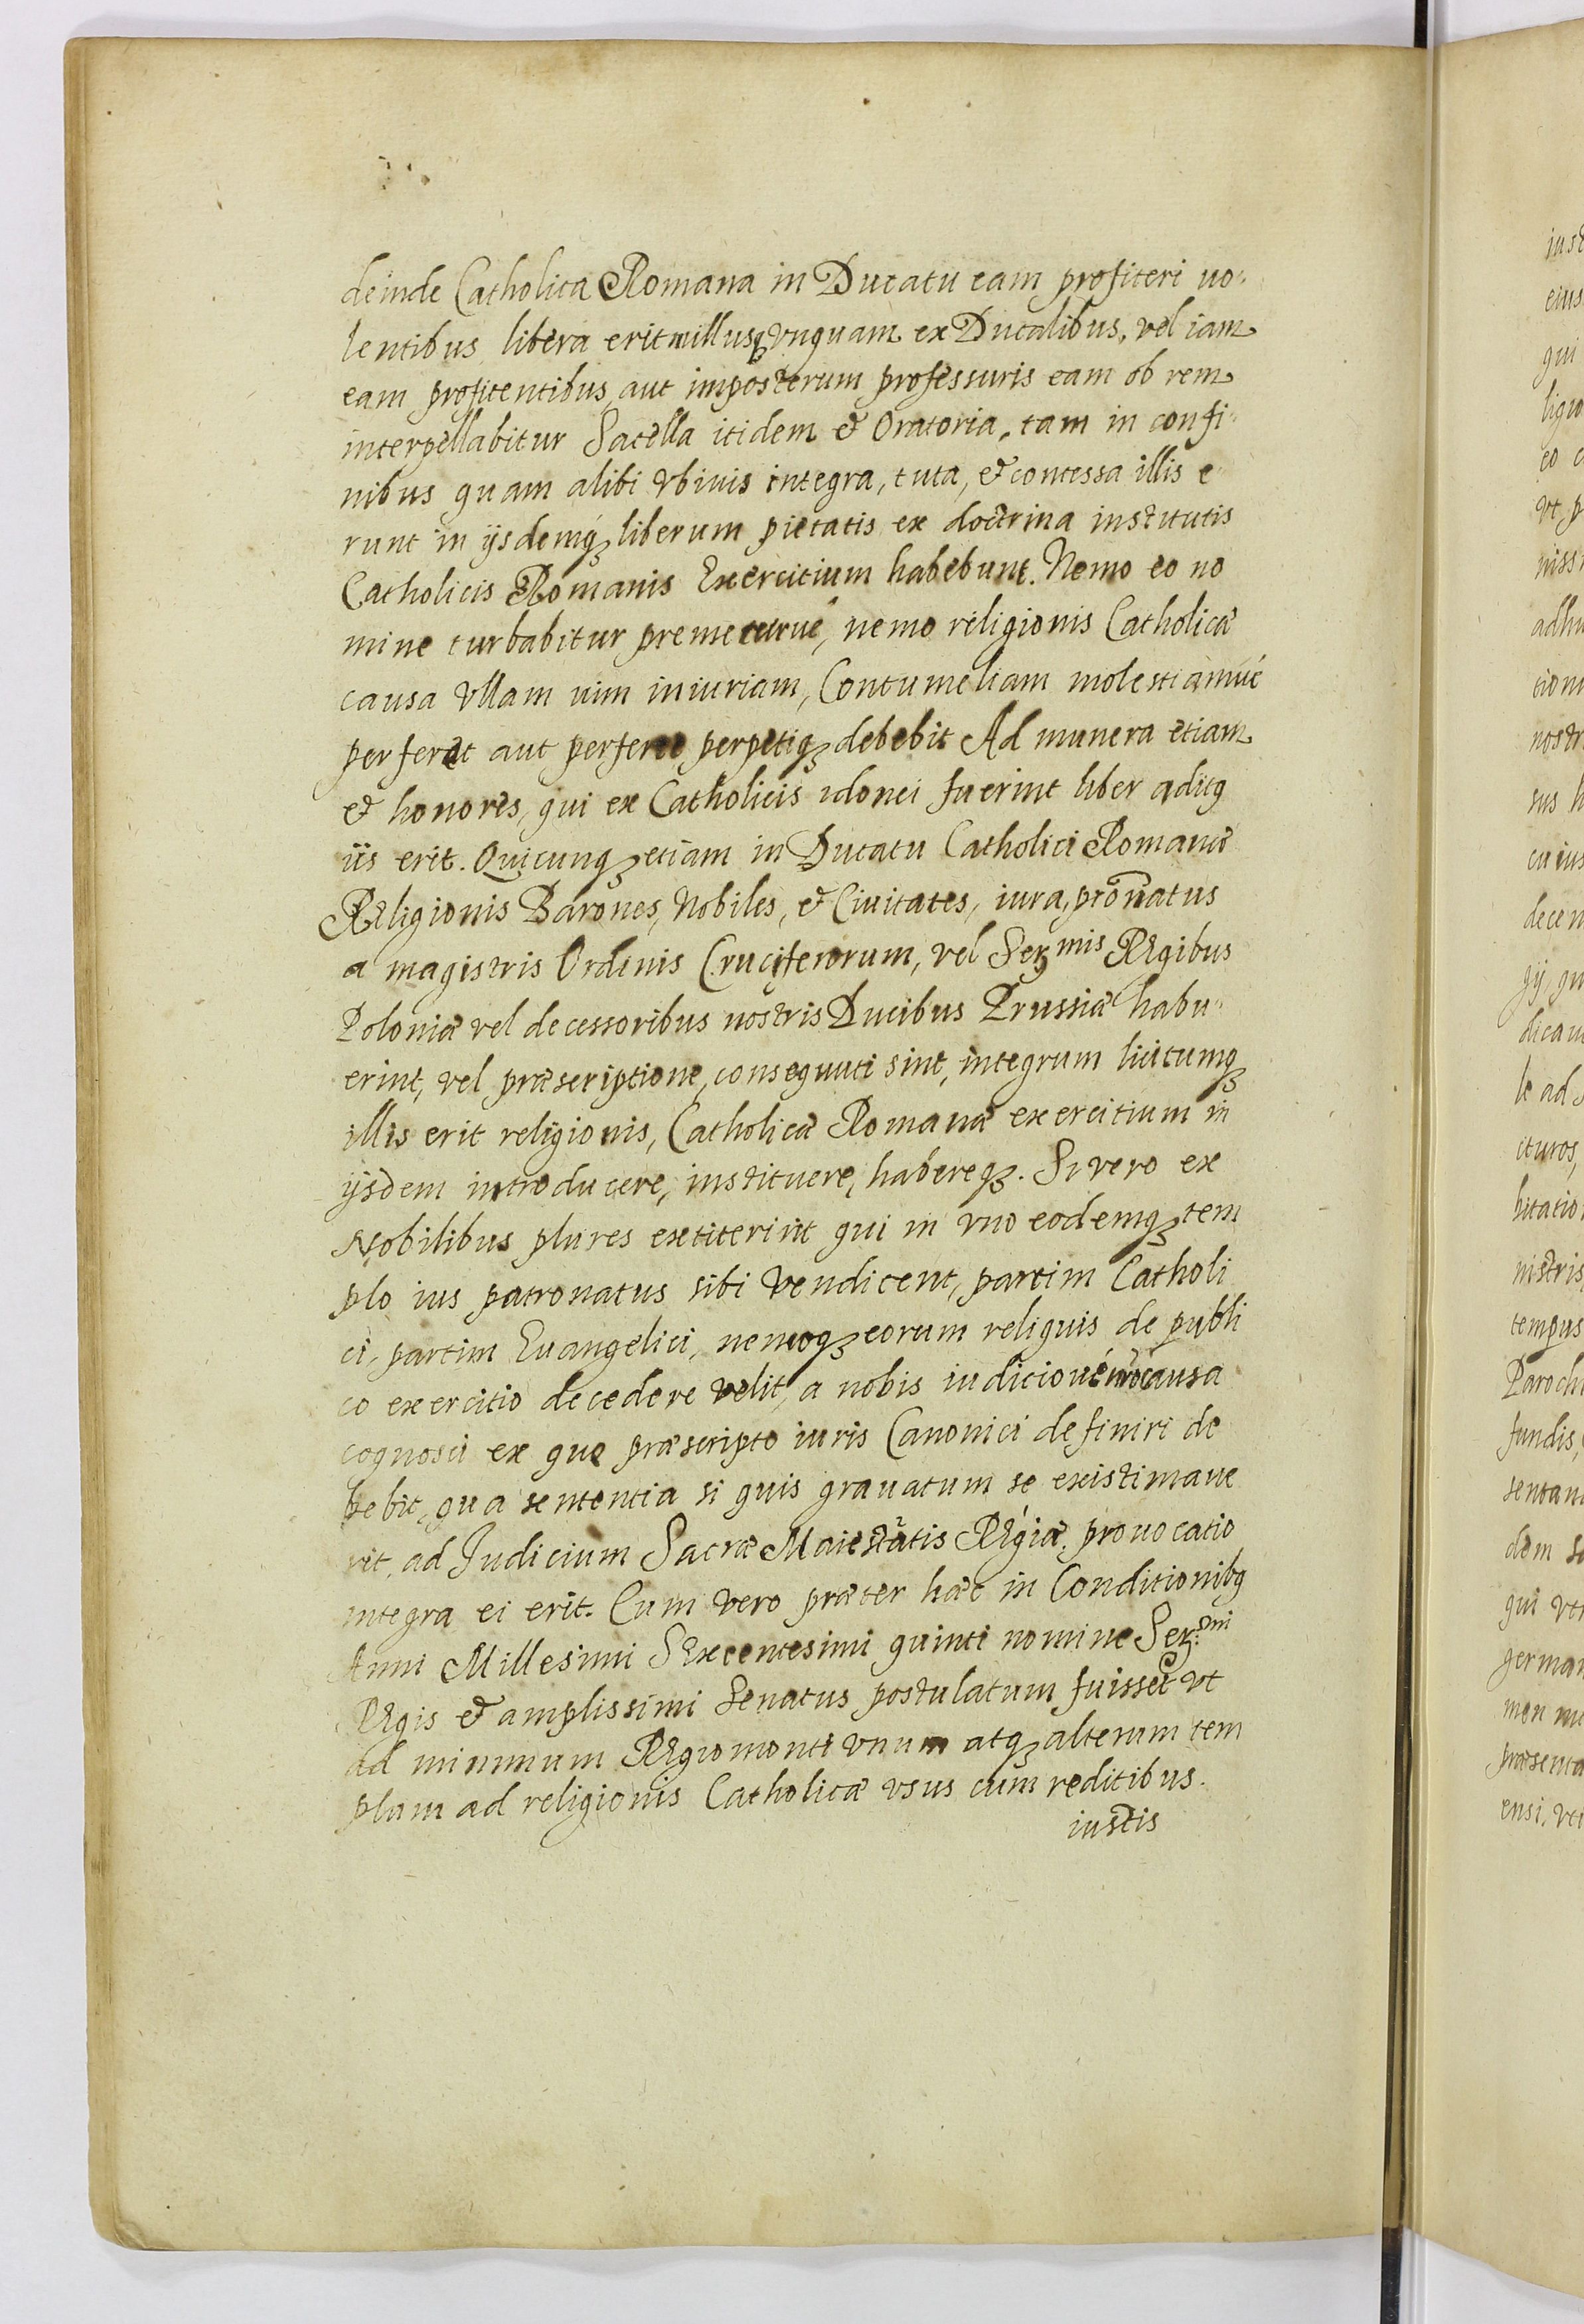 deinde Catholica Romana in Ducatu eam profiteri uo-
lentibus libera erit nullusq; vnquam ex Ducalibus, vel iam
eam profitentibus aut imposterum professuris eam ob rem
interpellabitur Sacella itidem & Oratoria, tam in confi-
nibus quam alibi vbiuis integra, tuta, & concessa illis e-
runt in ijsdemq; liberum pietatis ex doctrina institutis
Catholicis Romanis Exercitium habebunt. Nemo eo no
mine turbabitur premeturué, nemo religionis Catholicæ
causa vllam uim iniuriam, Contumeliam molestiamué
perferet aut perferre perpetiq; debebit Ad munera etiam
& honores, qui ex Catholicis idonei fuerint liber aditq
iis erit. Quicunq; etiam in Ducatu Catholici Romanæ
Religionis Barones, Nobiles, & Ciuitates, iura, pr̃onatus
a magistris Ordinis Cruciferorum, vel Serᵐⁱˢ Regibus
Poloniæ vel decessoribus nostris Ducibus Prussiæ habu-
erint, vel præscriptione, consequuti sint, integrum licitumq;
illis erit religionis, Catholicæ Romanæ exercitium in
ijsdem introducere, instituere, habereq;. Si vero ex
Nobilibus plures extiterint qui in vno eodemq; tem
plo ius patronatus sibi vendicent, partim Catholi
ci, partim Euangelici, nemoq; eorum reliquis de publi
co exercitio decedere velit, a nobis iudicioué nr̃o causa
cognosci ex quo præscripto iuris Canonici definiri de
bebit, qua sententia si quis grauatum se existimaue
rit, ad Judicium Sacræ Maiestatis Regiæ prouocatio
integra ei erit. Cum vero præter hæc in Conditionibq
Anni Millesimi Sexcentesimi quinti nomine Serᵐⁱ
Regis & amplissimi Senatus postulatum fuisset vt
ad minimum Regiomonti vnum atq; alterum tem
plum ad religionis Catholicæ vsus cum reditibus.
iustis
eius
qui
ligio
vt p
nostr
sus h
cuius
decem
dicau
le ad
cituros,
nistris
tempus
Parochi
fundis,
dem
qui vtr
german
præsenta
ensi, vti